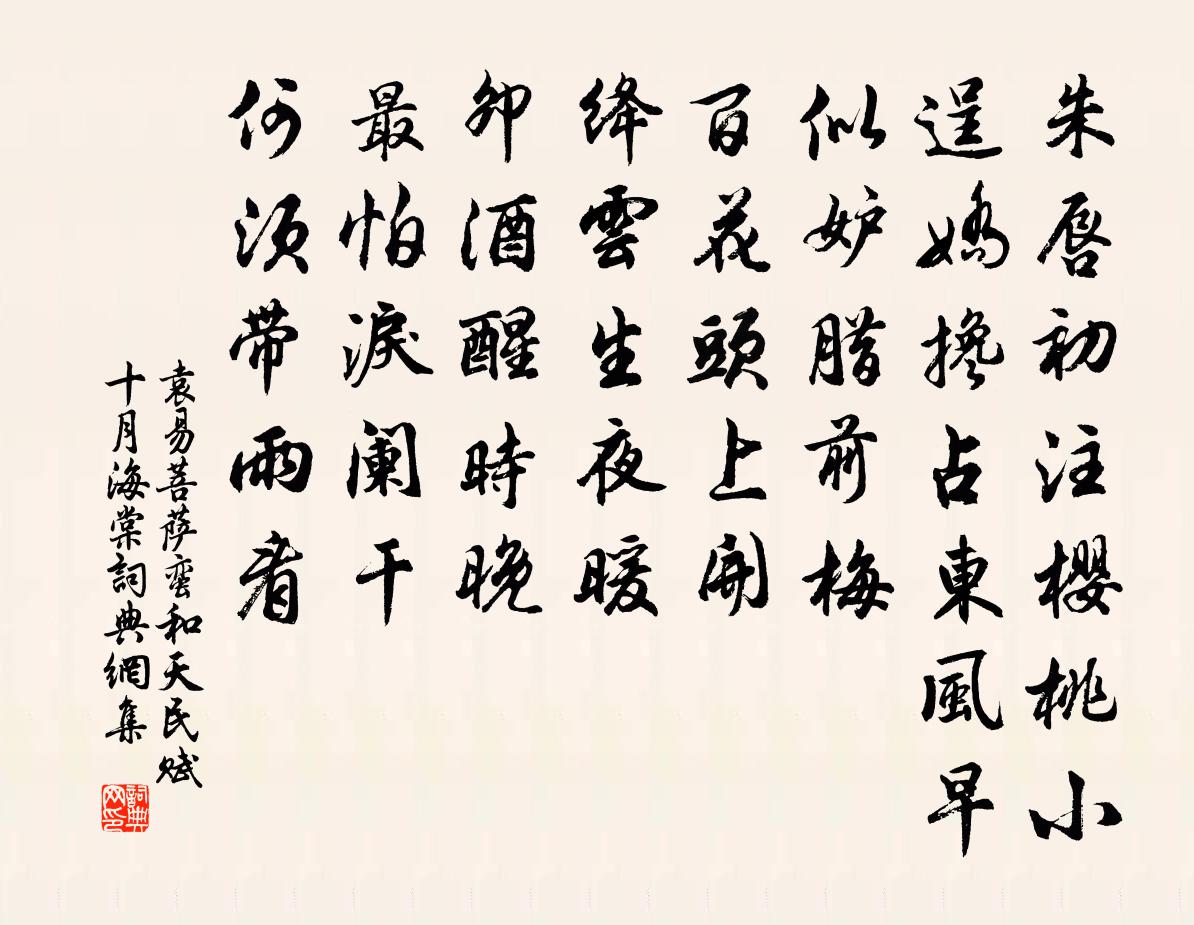 朱唇初注櫻桃小
逞嬌攙占東風早
似妒腊前梅
百花頭上開
絳雲生夜暖
卯酒醒時晚
最怕淚闌干
何須帶雨看
袁易菩萨蛮和天民赋
十月海棠詞典網集
詞典网印